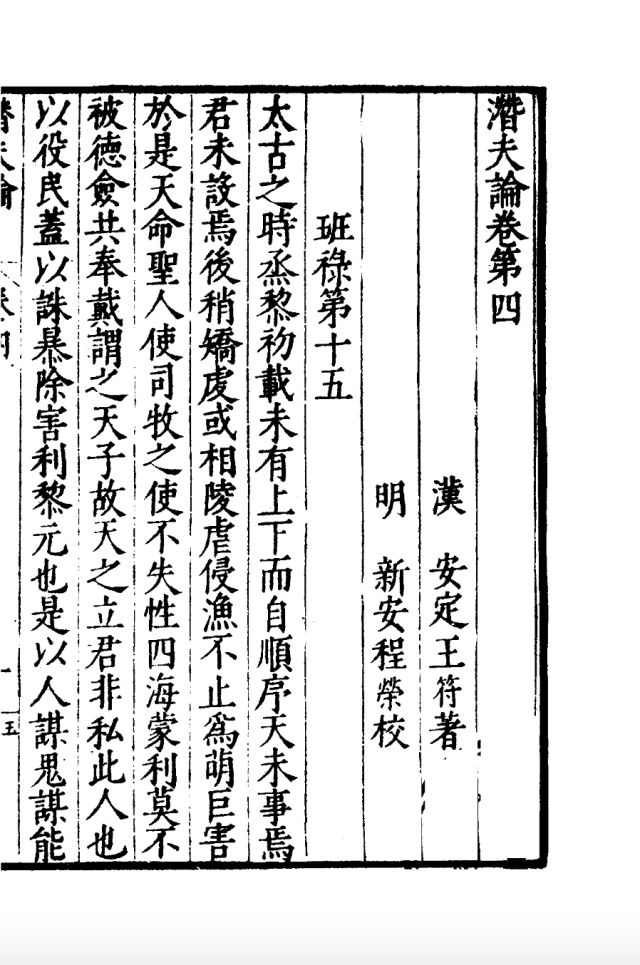 潛夫論卷第四
漢 安定王符著
明 新安程榮校
班祿第十五
太古之時烝黎初載未有上下而自順序天未事焉
君未設焉後稍矯虔或相陵虐侵漁不止爲萌巨害
於是天命聖人使司牧之使不失性四海蒙利莫不
被德僉共奉戴謂之天子故天之立君非私此人也
以役民蓋以誅暴除害利黎元也是以人謀鬼謀能